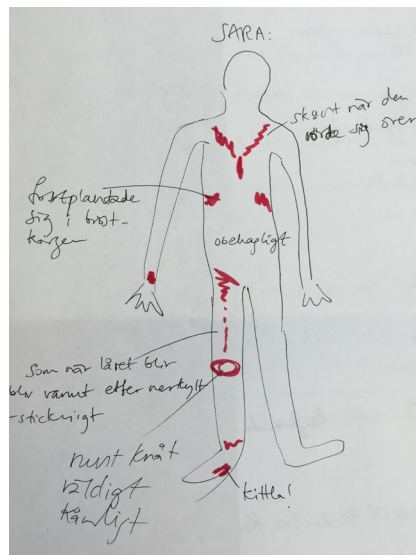 SARA:
skönt när den
rörde sig över
fortplantade
sig i bröst-
korgen
obehagligt
som när låret blir
blir varmt efter nerkylt
-stickigt
runt knät
väldigt
känsligt
kittla!